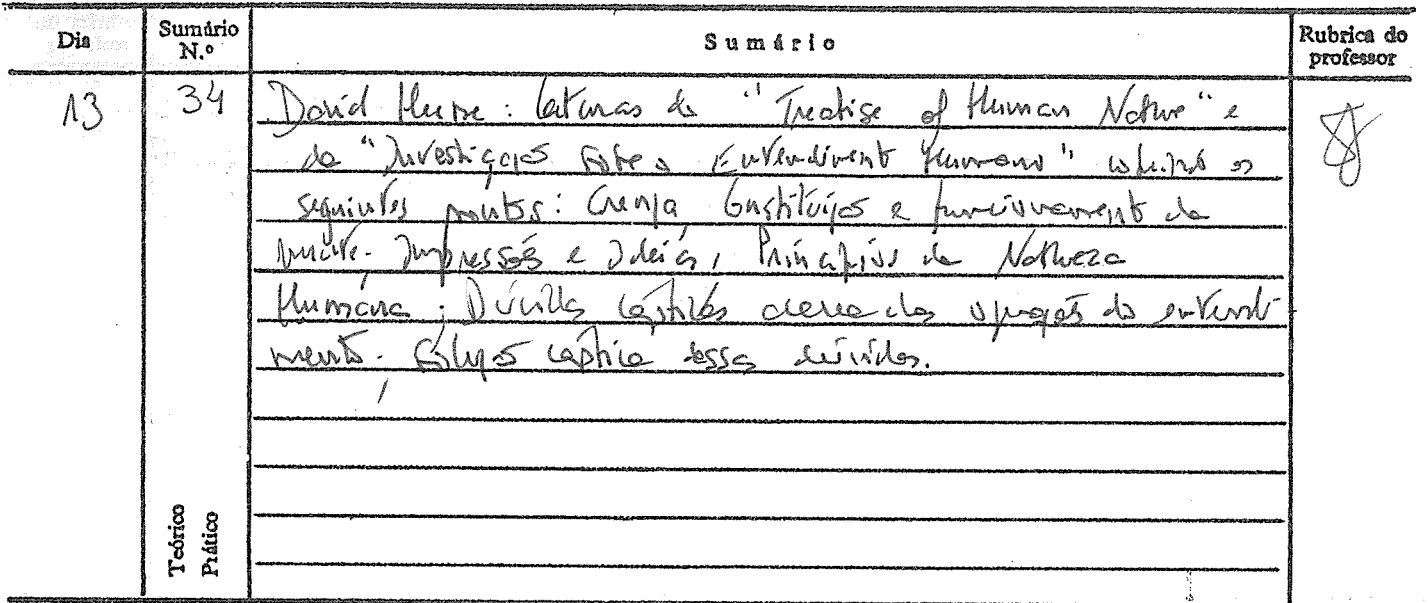 Dia
Sumário N.º
Sumário
Rubrica do professor
13
34
David Hume: leituras do "Treatise of Human Nature" e
da "Investigação sobre o Entendimento Humano" cobrindo os
seguintes pontos: Crença Constituição e funcionamento da
mente. Impressões e Ideias, Princípios da Natureza
Humana; Dúvidas cépticas acerca das operações do entendi
mento. Solução céptica dessas dúvidas.
Teórico
Prático